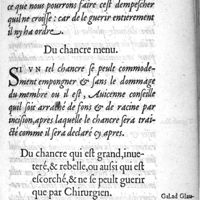 ce que nous pourrons faire c'est d'empescher
qui ne croisse: car de le guerir entierement
il n'y ha ordre.
Du chancre menu.
SI VN tel chancre se peut commode-
ment empongner & sans le dommage
du membre ou il est, Auicenne conseille
qu'il soit arraché de fons & de racine par
incision, apres laquelle le chancre sera trai-
cté comme il sera declaré cy apres.
Du chancre qui est grand, inue-
teré, & rebelle, ou aussi qui est
escorché, & ne se peult guerir
que par Chirurgien.
Gal. ad Glau-